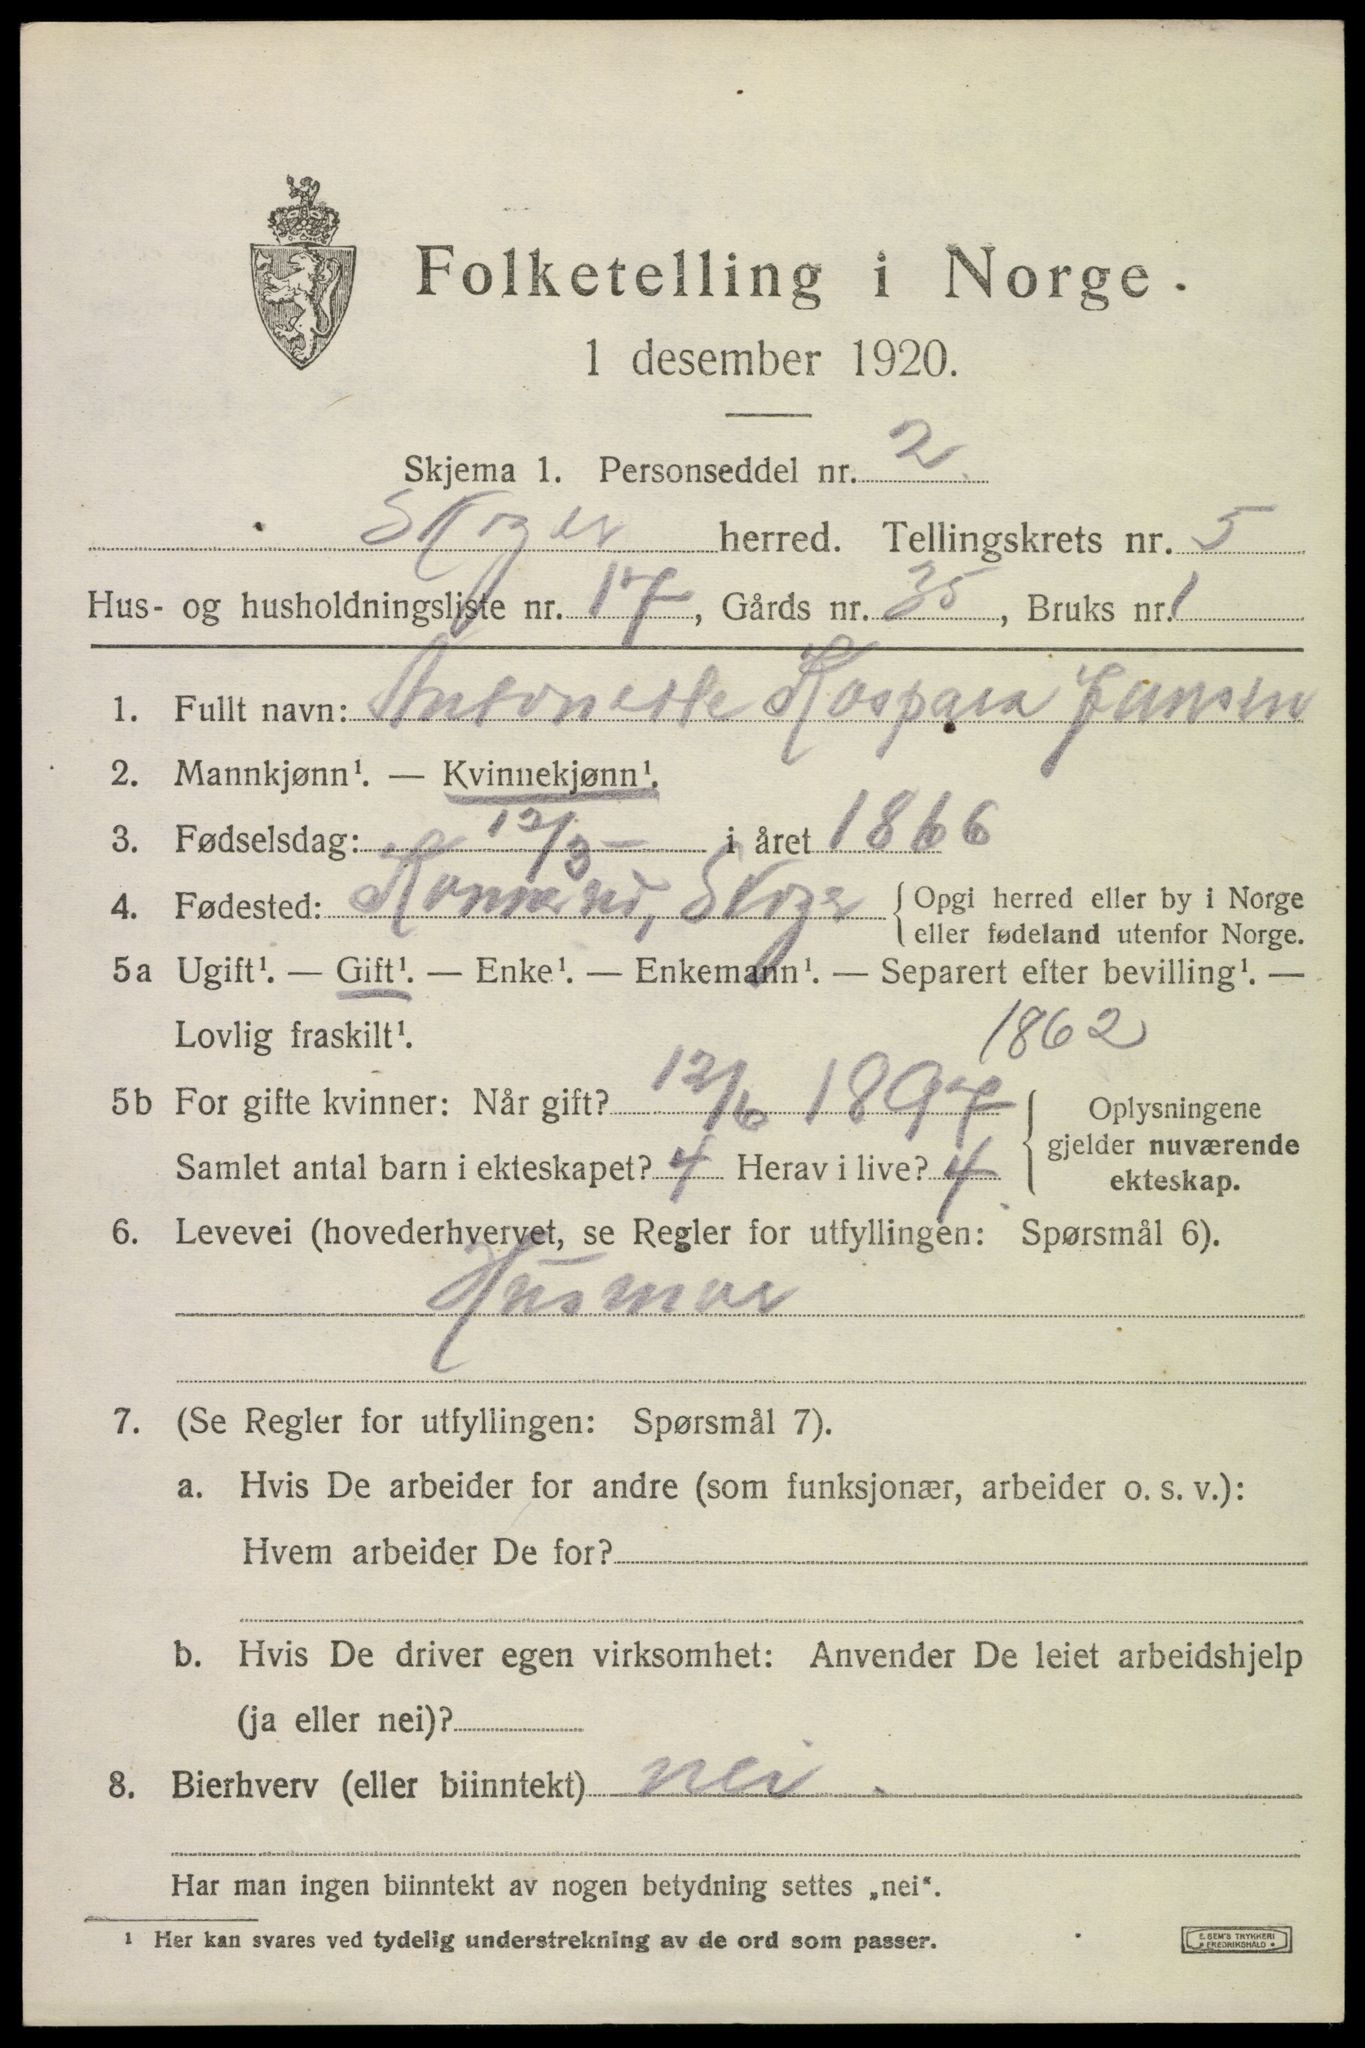 Folketelling i Norge.
1 desember 1920.
Skjema 1. Personseddel nr. 2.
Skoger herred. Tellingskrets nr. 5
Hus- og husholdningsliste nr. 17, Gårds nr. 35, Bruks nr. 1
1. Fullt navn: Antonette Kaspara Jansen
2. Mannkjønn¹. — Kvinnekjønn¹.
3. Fødselsdag: 12/3 – i året 1866
4. Fødested: Konnerud, Skoger { Opgi herred eller by i Norge
eller fødeland utenfor Norge.
5a Ugift¹. — Gift¹. — Enke¹. — Enkemann¹. — Separert efter bevilling¹. —
Lovlig fraskilt¹.
1862
5b For gifte kvinner: Når gift? 12/6 1897 { Oplysningene
gjelder nuværende
Samlet antal barn i ekteskapet? 4 Herav i live? 4.
ekteskap.
6. Levevei (hovederhvervet, se Regler for utfyllingen: Spørsmål 6).
Husmor
7. (Se Regler for utfyllingen: Spørsmål 7).
a. Hvis De arbeider for andre (som funksjonær, arbeider o. s. v.):
Hvem arbeider De for?
b. Hvis De driver egen virksomhet: Anvender De leiet arbeidshjelp
(ja eller nei)?
8. Bierhverv (eller biinntekt) nei.
Har man ingen biinntekt av nogen betydning settes „nei“.
¹ Her kan svares ved tydelig understrekning av de ord som passer.
E. SEM'S TRYKKERI
• FREDRIKSHALD •